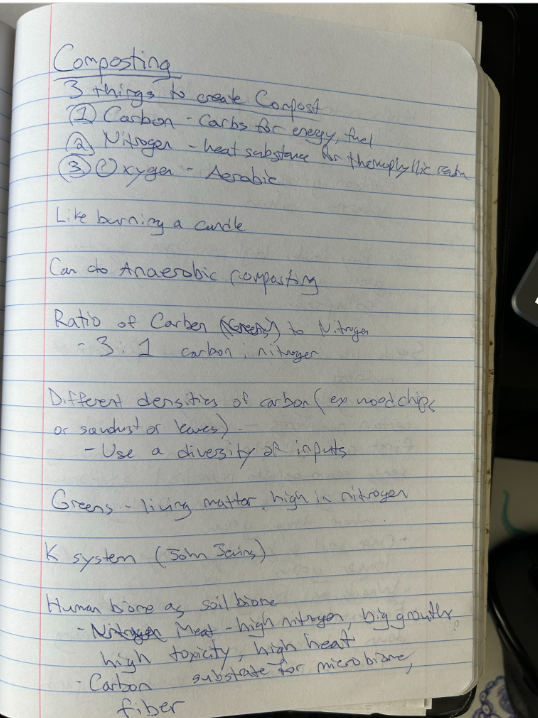 Composting
3 things to create Compost
① Carbon - Carbs for energy, fuel
② Nitrogen - heat substance for themophyllic
③ Oxygen - Aerobic
Like burning a candle
Can do Anaerobic composting
Ratio of Carbon (Greens) to Nitrogen
- 3:1 carbon, nitrogen
Different densities of carbon (ex woodchips
or sawdust or leaves)
- Use a diversity of inputs
Greens - living matter, high in nitrogen
K system (John
Human biome as soil biome
- Nitrogen Meat - high nitrogen, big growth,
high toxicity, high heat
- Carbon substrate for microbiome,
fiber